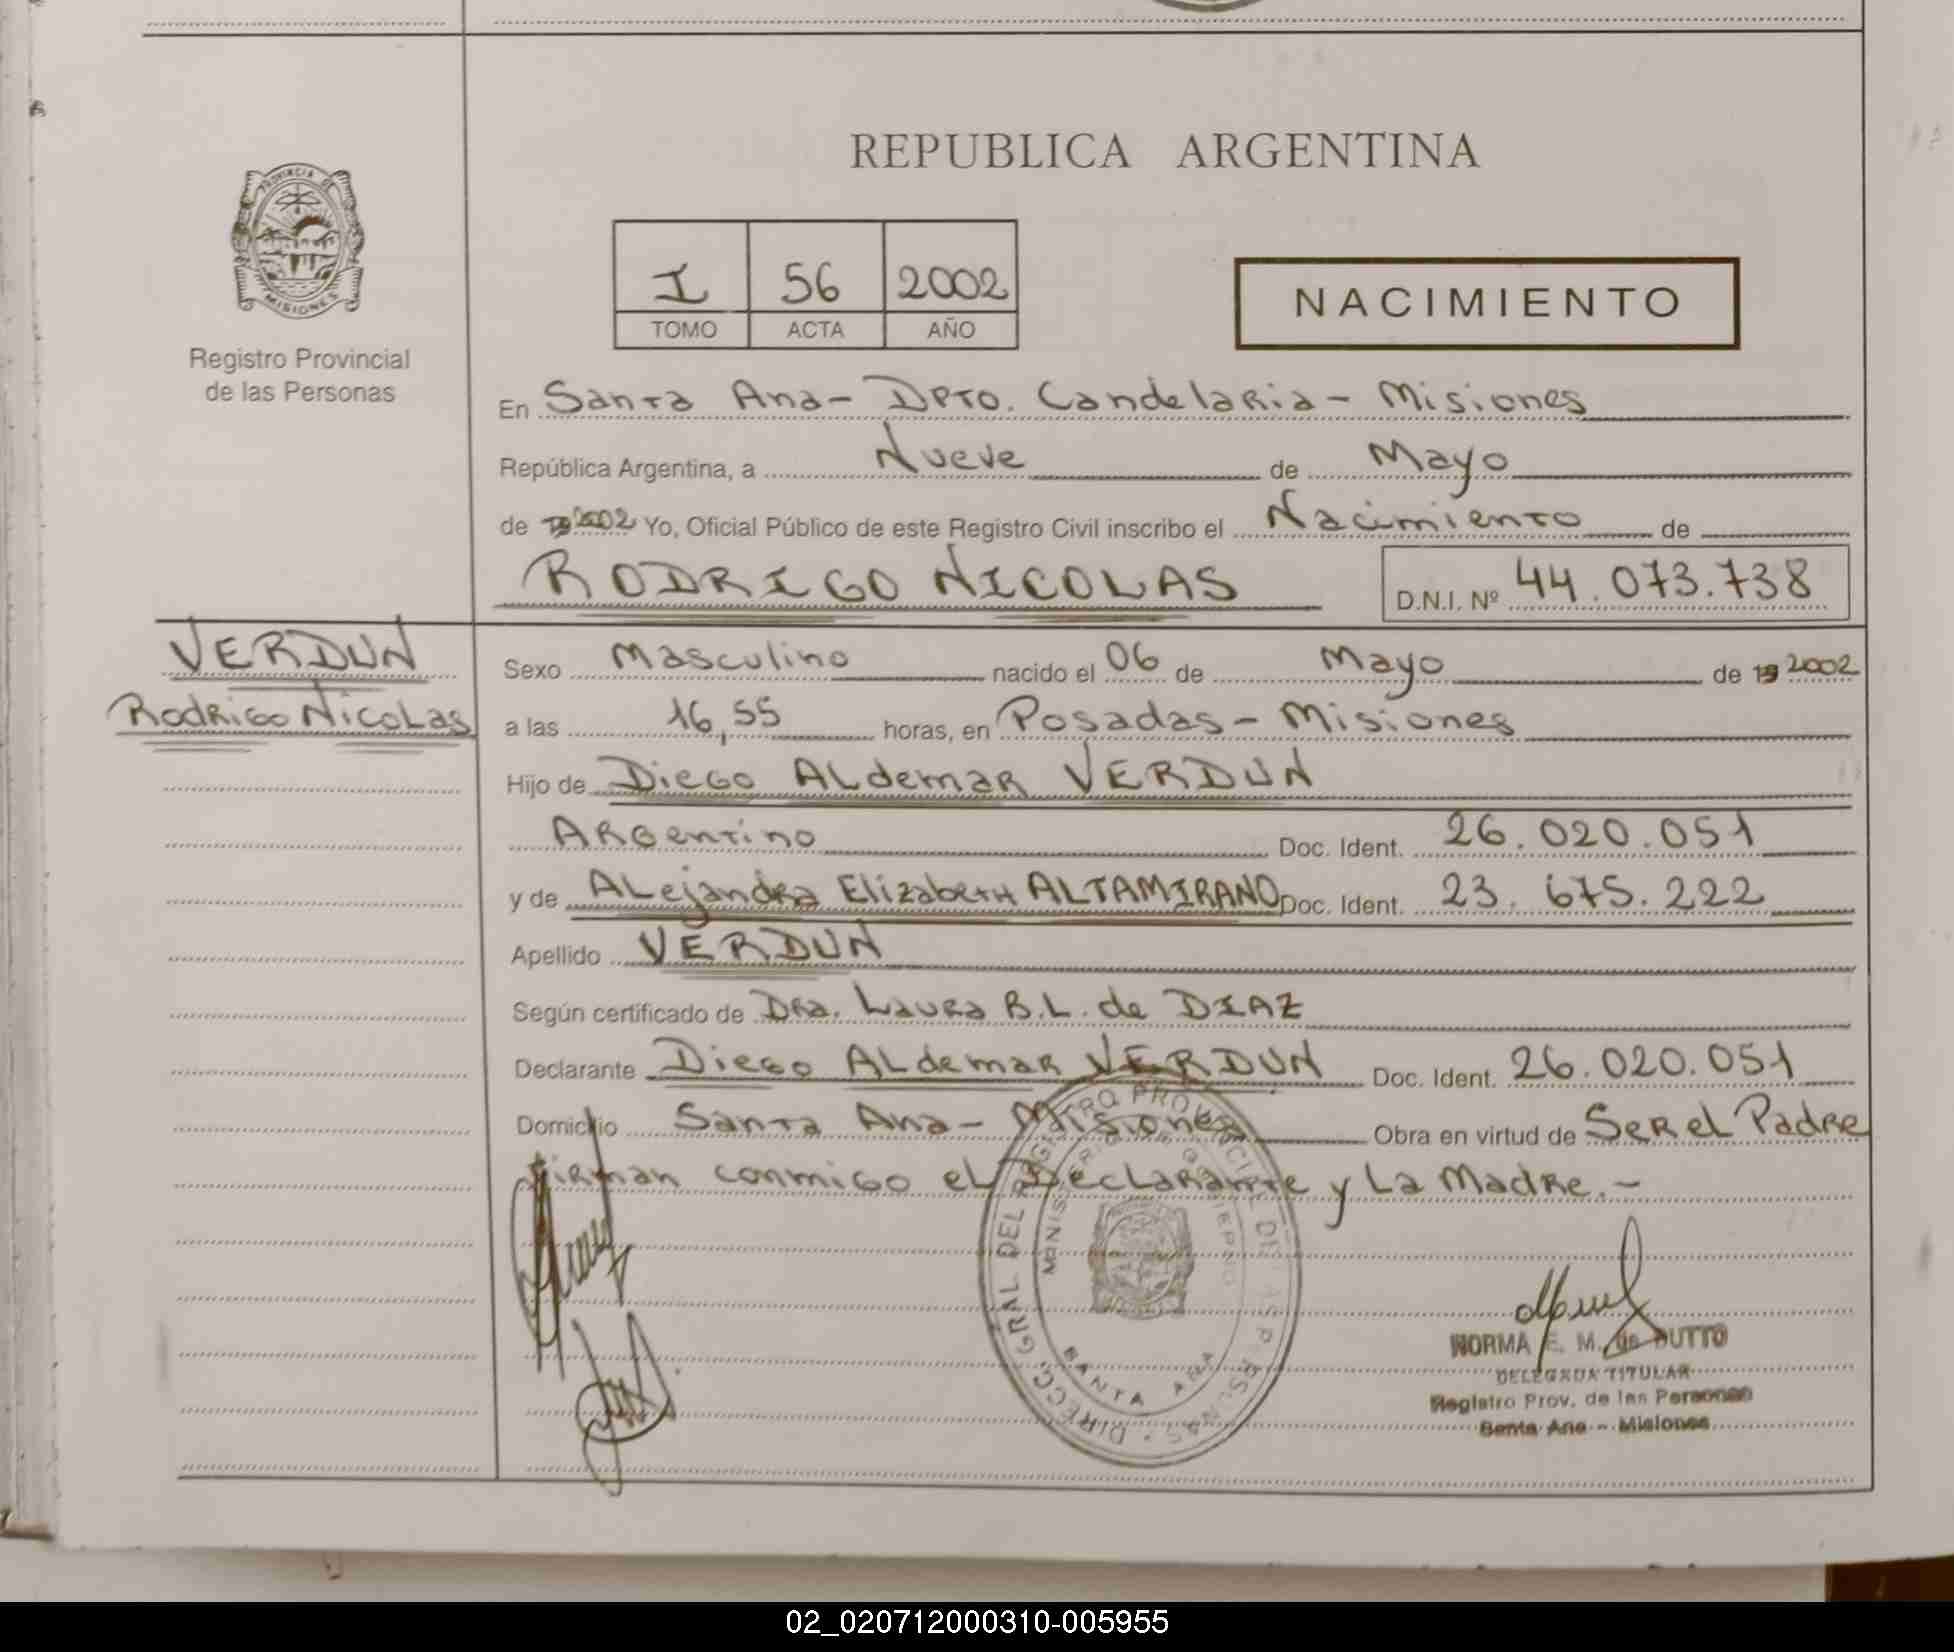 REPUBLICA ARGENTINA
PROVINCIA DE
MISIONES
Registro Provincial
de las Personas
I 56 2002
TOMO ACTA AÑO
NACIMIENTO
En Santa Ana - Dpto. Candelaria - Misiones
República Argentina, a Nueve de Mayo
de 2002 Yo, Oficial Público de este Registro Civil inscribo el Nacimiento de
RODRIGO NICOLAS D.N.I. Nº 44.073.738
VERDUN
Rodrigo Nicolas
Sexo Masculino nacido el 06 de Mayo de 19 2002
a las 16,55 horas, en Posadas - Misiones
Hijo de Diego Aldemar VERDUN
Argentino Doc. Ident. 26.020.051
y de Alejandra Elizabeth ALTAMIRANO Doc. Ident. 23.675.222
Apellido VERDUN
Según certificado de Dra. Laura B.L. de DIAZ
Declarante Diego Aldemar VERDUN Doc. Ident. 26.020.051
Domicilio Santa Ana - Misiones Obra en virtud de Ser el Padre
Firman conmigo el Declarante y La Madre.-
DIRECC. GRAL DEL REGISTRO PROVINCIAL DE LAS PERSONAS
MINISTERIO DE GOBIERNO
SANTA ANA
NORMA E. M. de DUTTO
DELEGADA TITULAR
Registro Prov. de las Personas
Santa Ana - Misiones
02_020712000310-005955